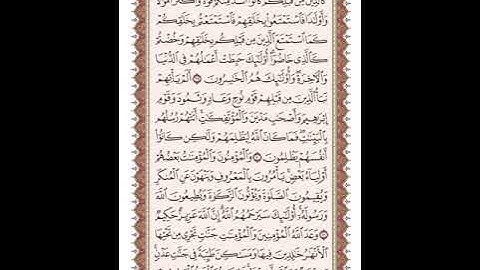 كَٱلَّذِينَ مِن قَبْلِكُمْ كَانُوٓا۟ أَشَدَّ مِنكُمْ قُوَّةً وَأَكْثَرَ أَمْوَٰلًا
وَأَوْلَٰدًا فَٱسْتَمْتَعُوا۟ بِخَلَٰقِهِمْ فَٱسْتَمْتَعْتُم بِخَلَٰقِكُمْ
كَمَا ٱسْتَمْتَعَ ٱلَّذِينَ مِن قَبْلِكُم بِخَلَٰقِهِمْ وَخُضْتُمْ
كَٱلَّذِى خَاضُوٓا۟ أُو۟لَٰٓئِكَ حَبِطَتْ أَعْمَٰلُهُمْ فِى ٱلدُّنْيَا
وَٱلْءَاخِرَةِ وَأُو۟لَٰٓئِكَ هُمُ ٱلْخَٰسِرُونَ ۝ أَلَمْ يَأْتِهِمْ
نَبَأُ ٱلَّذِينَ مِن قَبْلِهِمْ قَوْمِ نُوحٍ وَعَادٍ وَثَمُودَ وَقَوْمِ
إِبْرَٰهِيمَ وَأَصْحَٰبِ مَدْيَنَ وَٱلْمُؤْتَفِكَٰتِ أَتَتْهُمْ رُسُلُهُم
بِٱلْبَيِّنَٰتِ فَمَا كَانَ ٱللَّهُ لِيَظْلِمَهُمْ وَلَٰكِن كَانُوٓا۟
أَنفُسَهُمْ يَظْلِمُونَ ۝ وَٱلْمُؤْمِنُونَ وَٱلْمُؤْمِنَٰتُ بَعْضُهُمْ
أَوْلِيَآءُ بَعْضٍ يَأْمُرُونَ بِٱلْمَعْرُوفِ وَيَنْهَوْنَ عَنِ ٱلْمُنكَرِ
وَيُقِيمُونَ ٱلصَّلَوٰةَ وَيُؤْتُونَ ٱلزَّكَوٰةَ وَيُطِيعُونَ ٱللَّهَ
وَرَسُولَهُۥٓ أُو۟لَٰٓئِكَ سَيَرْحَمُهُمُ ٱللَّهُ إِنَّ ٱللَّهَ عَزِيزٌ حَكِيمٌ
۝ وَعَدَ ٱللَّهُ ٱلْمُؤْمِنِينَ وَٱلْمُؤْمِنَٰتِ جَنَّٰتٍ تَجْرِى مِن تَحْتِهَا
ٱلْأَنْهَٰرُ خَٰلِدِينَ فِيهَا وَمَسَٰكِنَ طَيِّبَةً فِى جَنَّٰتِ عَدْنٍ